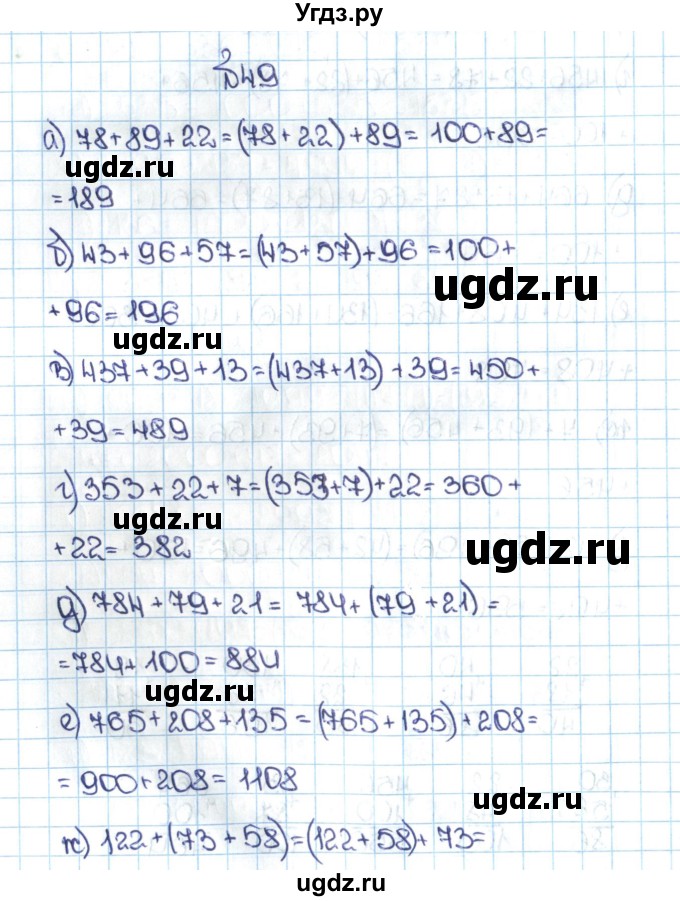 Угдз.ру
№49
а) 78+89+22=(78+22)+89= 100+89=
ugdz.ru
=189
б) 43+96+57=(43+57)+96=100+
ugdz.ru
+96=196
ugdz.ru
в) 437+39+13=(437+13)+39=450+
+39=489
г) 353+22+7=(353+7)+22=360+
ugdz.ru
+22= 382
ugdz.ru
д) 784+79+21= 784+(79+21)=
=784+100=884
ugdz.ru
е) 765+208+135=(765+135)+208=
=900+208= 1108
ugdz.ru
ж) 122+(73+58)=(122+58)+73=
ugdz.ru